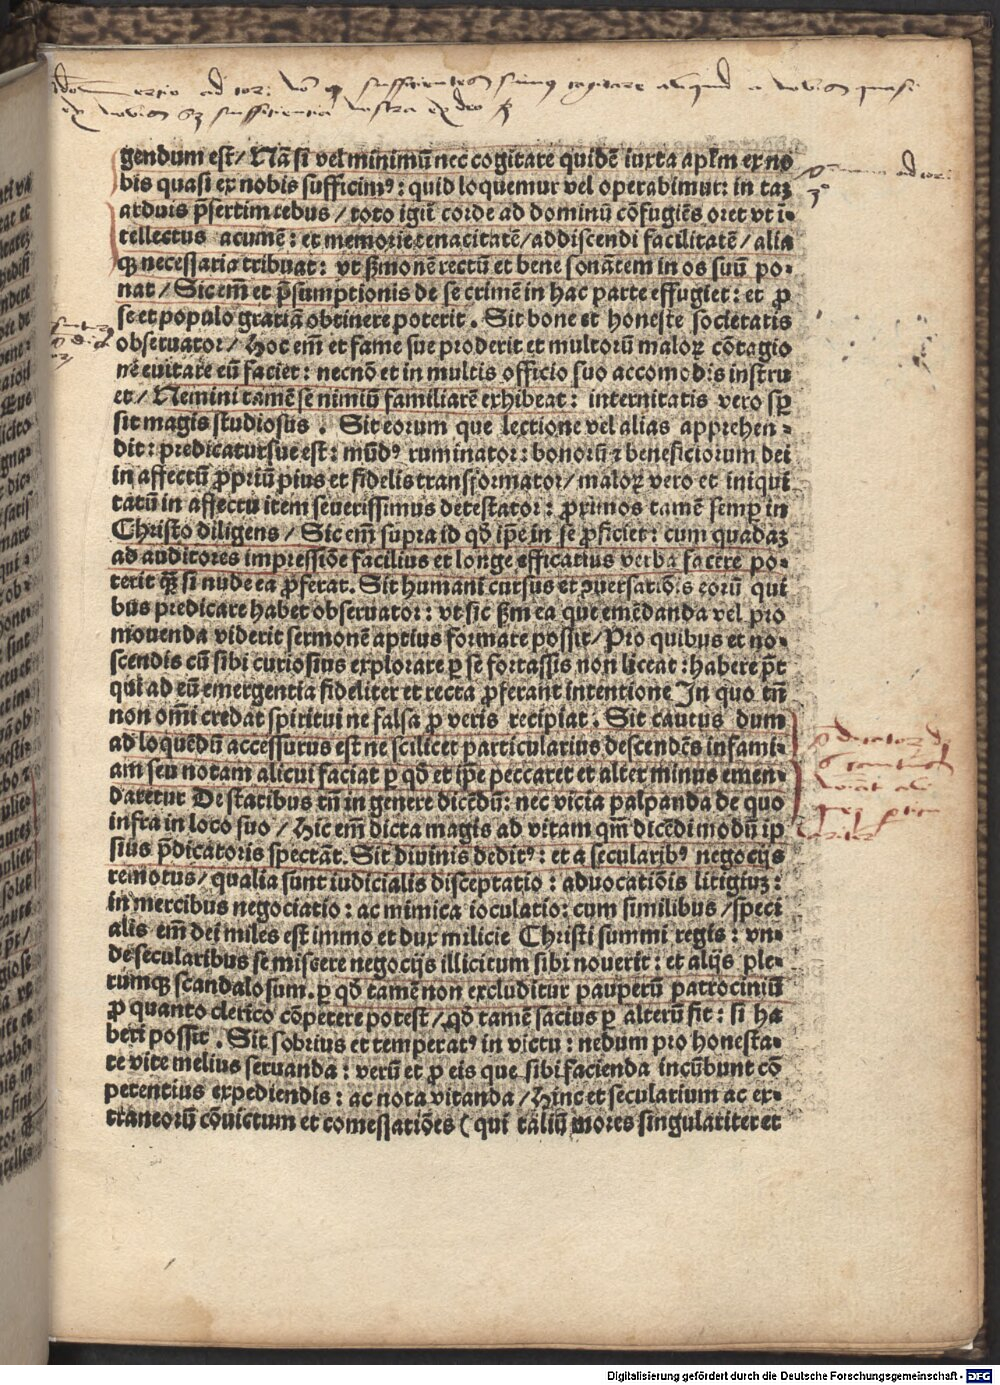 gendum est/ Nā si vel minimū nec cogitare quidē iuxta aplm ex no
bis quasi ex nobis sufficimꝰ: quid loquemur vel operabimur: in taꝫ
arduis p̄sertim rebus / toto igit̄ corde ad dominū cōfugiēs oret vt i⸗
tellectus acumē: et memorie tenacitatē/addiscendi facilitatē/ alia
qꝫ necessaria tribuat: vt ẜmonē rectū et bene sonātem in os suū po⸗
nat/ Sic em̄ et p̄sumptionis de se crimē in hac parte effugiet: et ꝓ
se et populo gratiā obtinere poterit. Sit bone et honeste societatis
obseruator/ Hoc em̄ et fame sue proderit et multorū maloꝝ cōtagio
nē euitare eū faciet: necnō et in multis officio suo accomodis instru
et/ Nemini tamē se nimiū familiarē exhibeat: internitatis vero sꝑ
sit magis studiosus. Sit eorum que lectione vel alias apprehen⸗
dit: predicatursue est: mūdꝰ ruminator: bonorū ⁊ beneficiorum dei
in affectū ꝓpriū pius et fidelis transformator/ maloꝝ vero et iniqui
tatū in affectu item seuerissimus detestator: ꝓximos tamē semꝑ in
Christo diligens/ Sic em̄ supra id qd̄ ip̄e in se ꝓficiet: cum quadaꝫ
ad auditores impressiōe facilius et longe efficatius verba facere po⸗
terit qꝫ si nude ea ꝓferat. Sit humani cursus et ꝯuersatiōis eorū qui
bus predicare habet obseruator: vt sic ẜm ea que emēdanda vel pro
mouenda viderit sermonē aptius formare possit/ Pro quibus et no⸗
scendis cū sibi curiosius explorare ꝑ se fortassis non liceat: habere p̄t
qui ad eū emergentia fideliter et recta ꝓferant intentione In quo tn̄
non om̄i credat spiritui ne falsa ꝓ veris recipiat. Sit cautus dum
ad loquēdū accessurus est ne scilicet particularius descendēs infami⸗
am seu notam alicui faciat ꝑ qd̄ et ip̄e peccaret et alter minus emen⸗
daretur De statibus tn̄ in genere dicēdū: nec vicia palpanda de quo
infra in loco suo/ Hic em̄ dicta magis ad vitam qm̄ dicēdi modū ip
sius p̄dicatoris spectāt. Sit diuinis deditꝰ: et a secularibꝰ negocijs
remotus/ qualia sunt iudicialis disceptatio: aduocatiōis litigiuꝫ:
in mercibus negociatio: ac mimica ioculatio: cum similibus/ speci
alis em̄ dei miles est immo et dux milicie Christi summi regis: vn⸗
de secularibus se miscere negocijs illicitum sibi nouerit: et alijs ple⸗
rumqꝫ scandalosum. ꝑ qd̄ tamē non excluditur pauperū patrociniū
ꝓ quanto clerico cōpetere potest/ qd̄ tamē sacius ꝑ alterū fit: si ha
beri possit. Sit sobrius et temperatꝰ in victu: nedum pro honesta⸗
te vite melius seruanda: verū et ꝓ eis que sibi facienda incūbunt cō
petentius expediendis: ac nota vitanda/ Hinc et secularium ac ex⸗
traneorū cōuictum et comessatiōes (qui taliū mores singulariter et
Digitalisierung gefördert durch die Deutsche Forschungsgemeinschaft - DFG